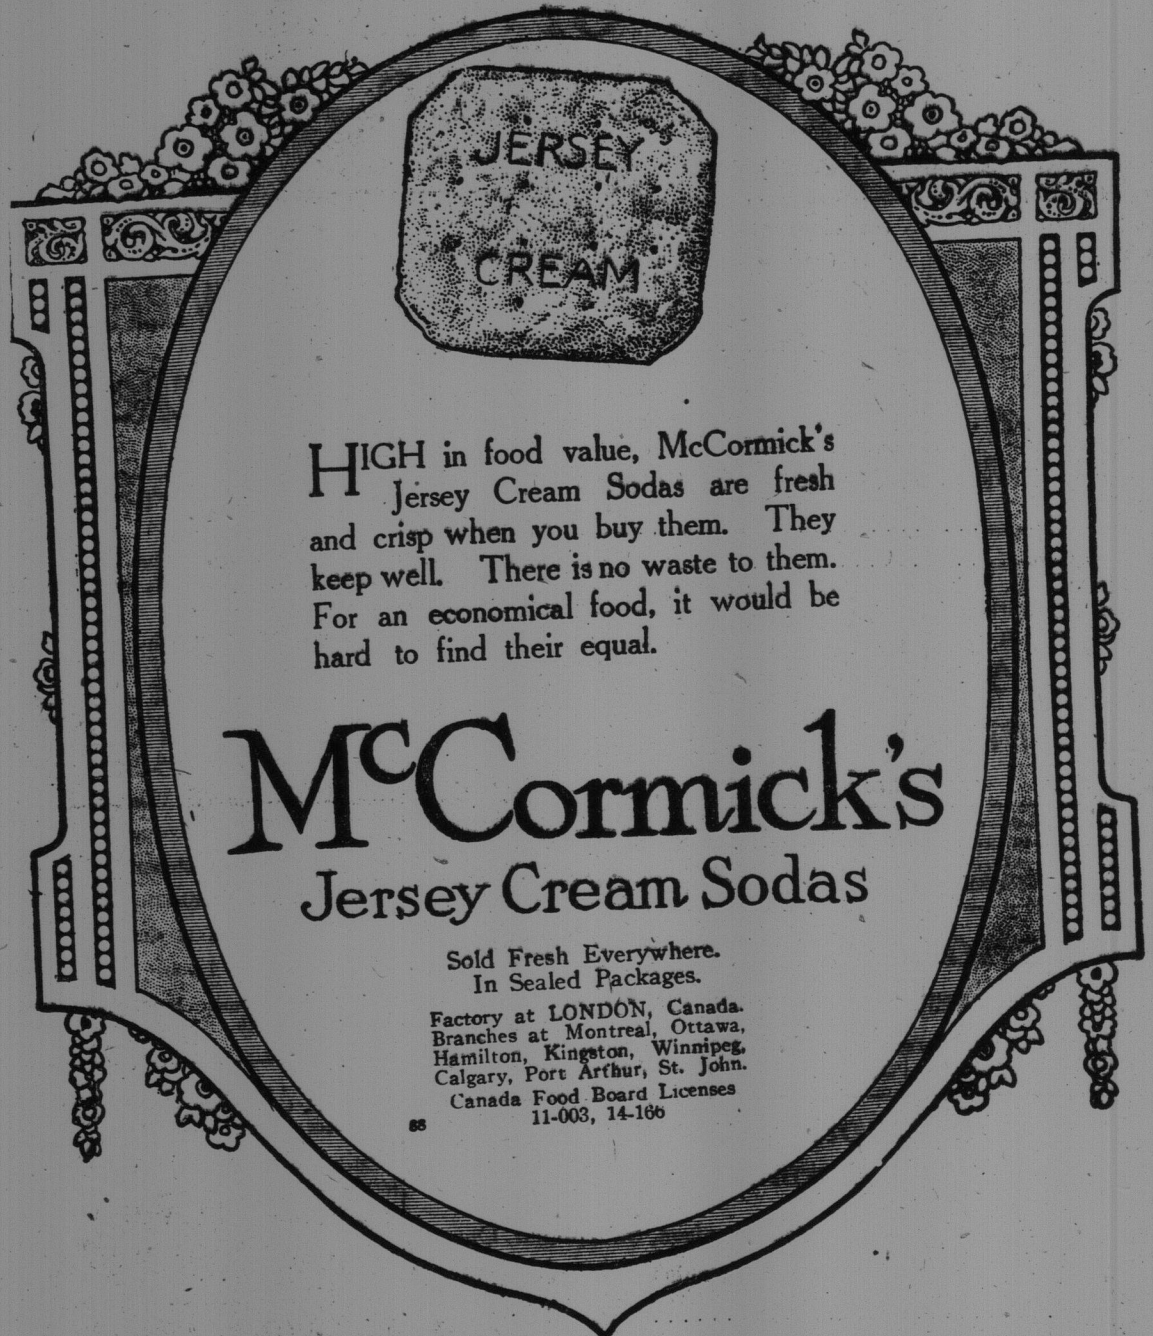 JERSEY
CREAM
HIGH in food value, McCormick's
Jersey Cream Sodas are fresh
and crisp when you buy them. They
keep well. There is no waste to them.
For an economical food, it would be
hard to find their equal.
McCormick's
Jersey Cream Sodas
Sold Fresh Everywhere.
In Sealed Packages.
Factory at LONDON, Canada.
Branches at Montreal, Ottawa,
Hamilton, Kingston, Winnipeg,
Calgary, Port Arthur, St. John.
Canada Food Board Licenses
11-003, 14-166